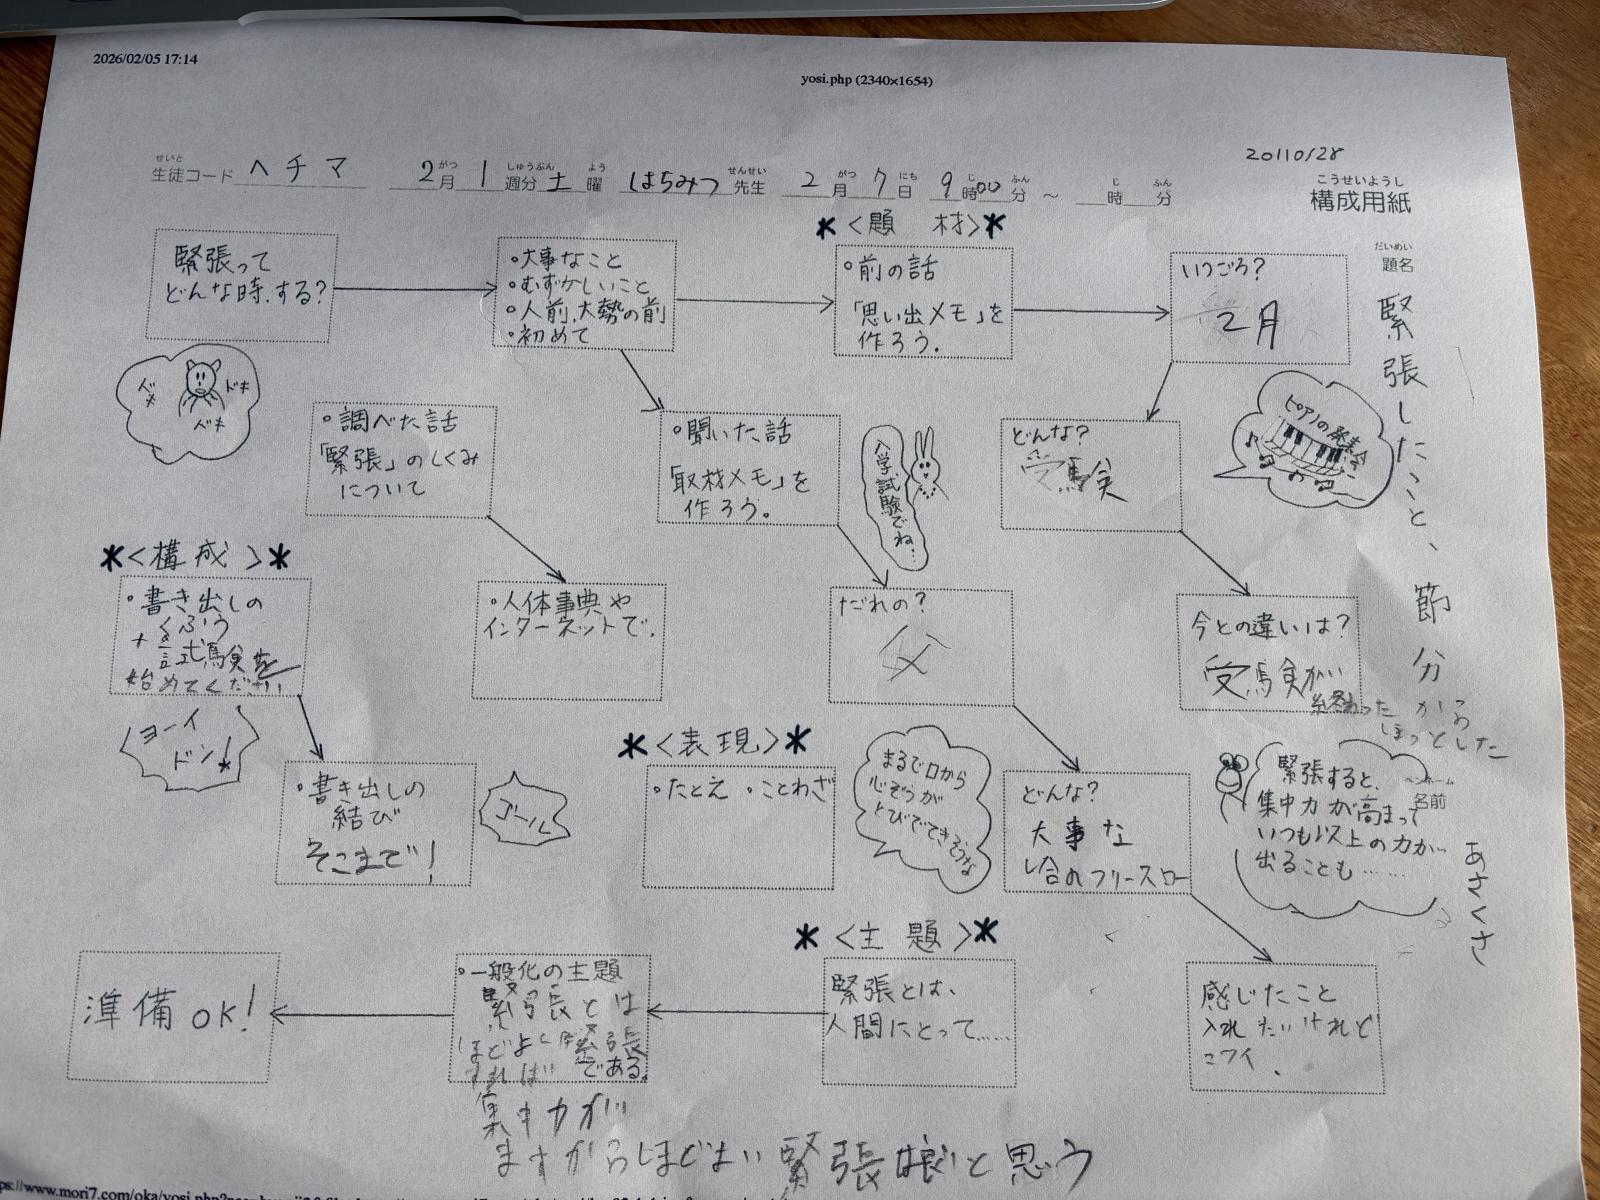 2026/02/05 17:14
yosi.php (2340×1654)
20110128
せいと
生徒コード ヘチマ
2月 1週分 土曜 はちみつ先生 2月7日 9時00分 ～ 時 分
がつ しゅうぶん よう せんせい がつ にち じ ふん じ ふん
こうせいようし
構成用紙
だいめい
題名
緊張したこと、節分
ペンネーム
名前
あさくさ
緊張って
どんな時、する?
ドキ
ドキ
ドキ
・大事なこと
・むずかしいこと
・人前、大勢の前
・初めて
*<題 材>*
・前の話
「思い出メモ」を
作ろう。
いつごろ?
2月
ピアノの発表会
・調べた話
「緊張」のしくみ
について
・聞いた話
「取材メモ」を
作ろう。
入学試験でね…
どんな?
受験
*<構成>*
・書き出しの
くふう
+試験を
始めてください
ヨーイ
ドン!
・人体事典や
インターネットで。
だれの?
父
今との違いは?
受験が
終わったから
ほっとした
・書き出しの
結び
そこまで!
ゴール
*<表現>*
・たとえ ・ことわざ
まるで口から
心ぞうが
とびでてきそうな
どんな?
大事な
試合のフリースロー
緊張すると、
集中力が高まって
いつも以上の力が
出ることも……
感じたこと
入れたいけれど
コワイ.
*<主題>*
緊張とは、
人間にとって……
・一般化の主題
緊張とは
ほどよく緊張
すれば
である。
集中力が
ますからほどよい緊張は良いと思う
準備OK!